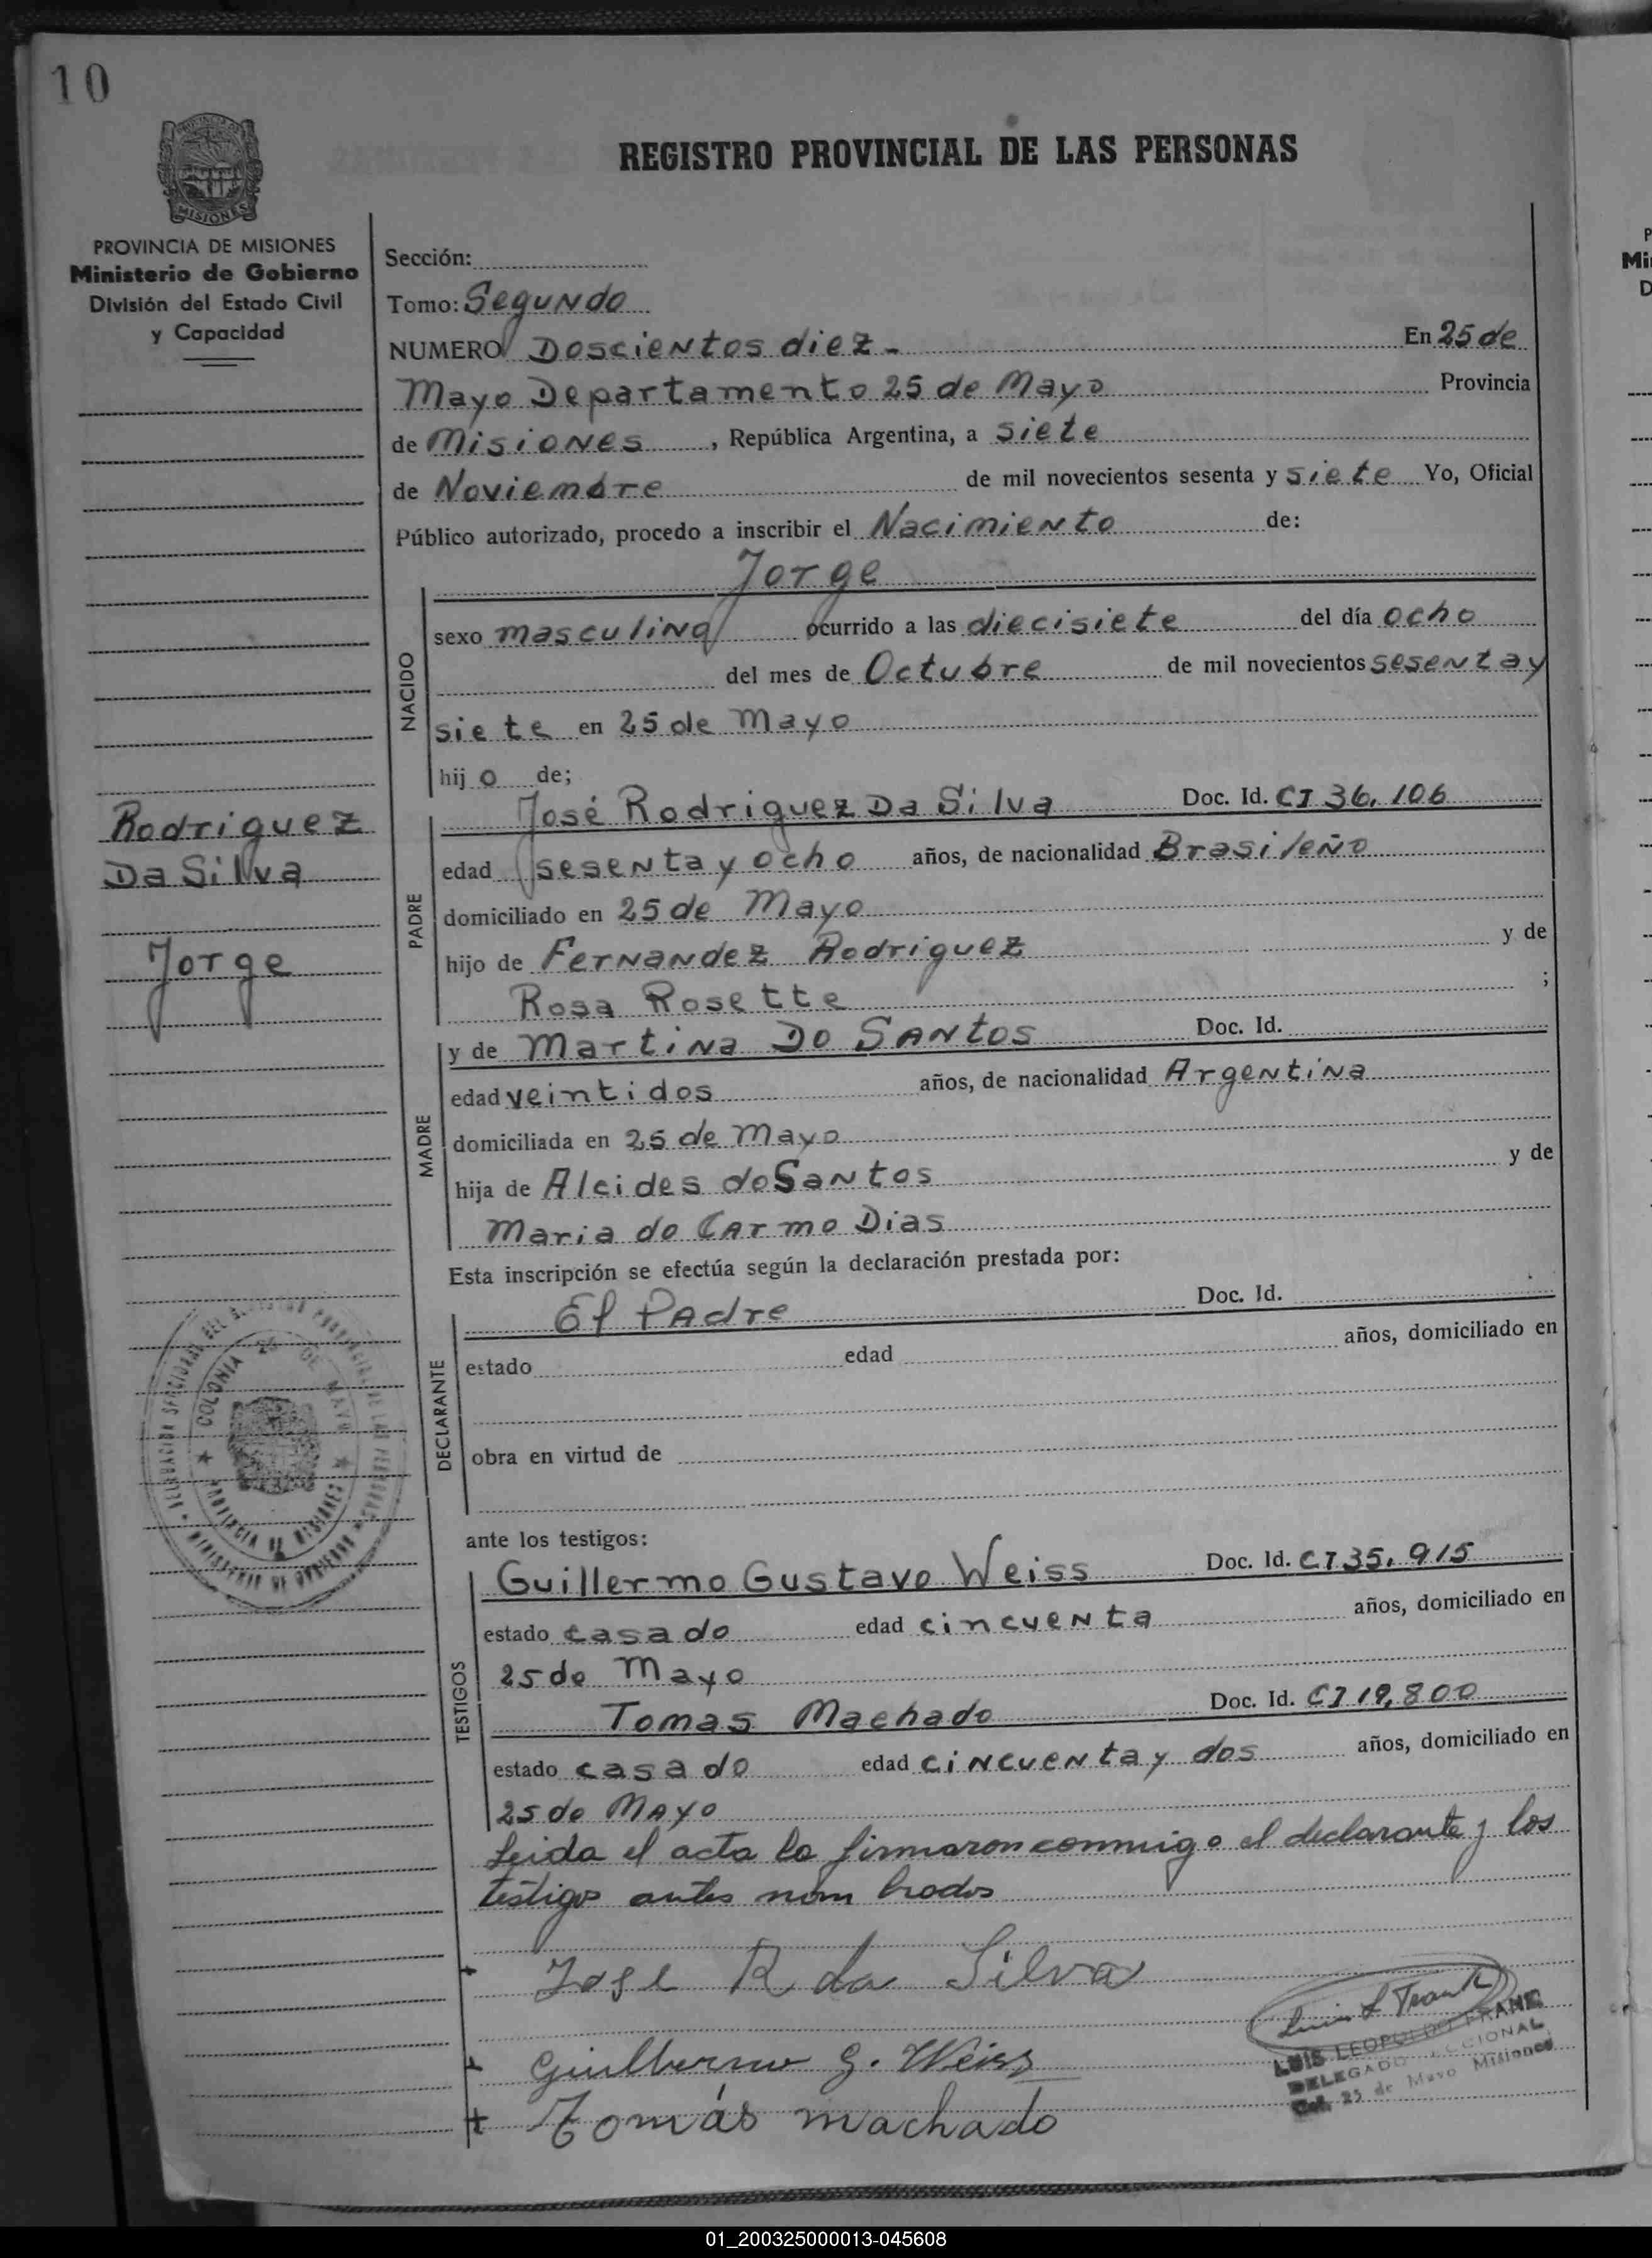 10
REGISTRO PROVINCIAL DE LAS PERSONAS
MISIONES
PROVINCIA DE MISIONES
Ministerio de Gobierno
División del Estado Civil
y Capacidad
Sección:
Tomo: Segundo
NUMERO Doscientos diez - En 25 de
Mayo Departamento 25 de Mayo Provincia
de Misiones, República Argentina, a siete
de Noviembre de mil novecientos sesenta y siete Yo, Oficial
Público autorizado, procedo a inscribir el Nacimiento de:
Jorge
NACIDO
sexo masculino ocurrido a las diecisiete del día ocho
del mes de Octubre de mil novecientos sesenta y
siete en 25 de Mayo
hijo de;
Rodriguez
Da Silva
Jorge
PADRE
José Rodriguez Da Silva Doc. Id. CI 36.106
edad sesenta y ocho años, de nacionalidad Brasileño
domiciliado en 25 de Mayo
hijo de Fernandez Rodriguez y de
Rosa Rosette ;
MADRE
y de Martina Do Santos Doc. Id.
edad veintidos años, de nacionalidad Argentina
domiciliada en 25 de Mayo
hija de Alcides do Santos y de
Maria do Carmo Dias
Esta inscripción se efectúa según la declaración prestada por:
DECLARANTE
El Padre Doc. Id.
estado edad años, domiciliado en
obra en virtud de
COLONIA 25 DE MAYO
PROVINCIA DE MISIONES
MINISTERIO DE GOBIERNO
ante los testigos:
TESTIGOS
Guillermo Gustavo Weiss Doc. Id. CI 35.915
estado casado edad cincuenta años, domiciliado en
25 de Mayo
Tomas Machado Doc. Id. CI 19,800
estado casado edad cincuenta y dos años, domiciliado en
25 de Mayo
Leida el acta la firmaron conmigo el declarante y los
testigos antes nombrados
Jose R da Silva
Guilherme G. Weiss
Tomás machado
Luis L Frank
LUIS LEOPOLDO FRANK
DELEGADO SECCIONAL
Col. 25 de Mayo Misiones
01_200325000013-045608